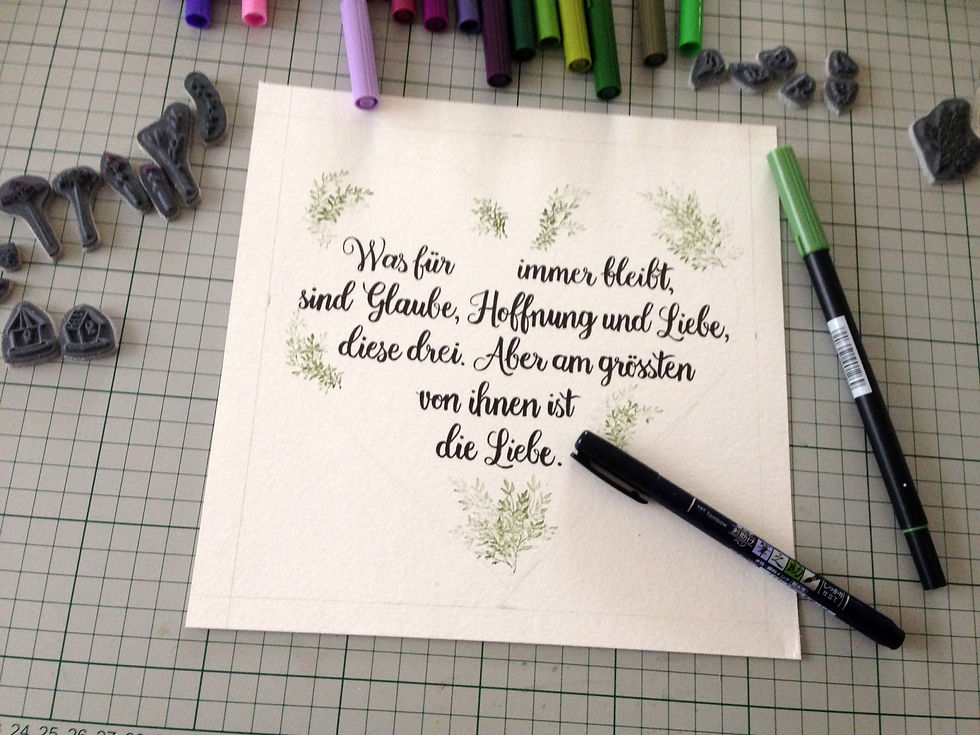 Was für immer bleibt,
sind Glaube, Hoffnung und Liebe,
diese drei. Aber am grössten
von ihnen ist
die Liebe.
Tombow
筆之助
24 25 26 27